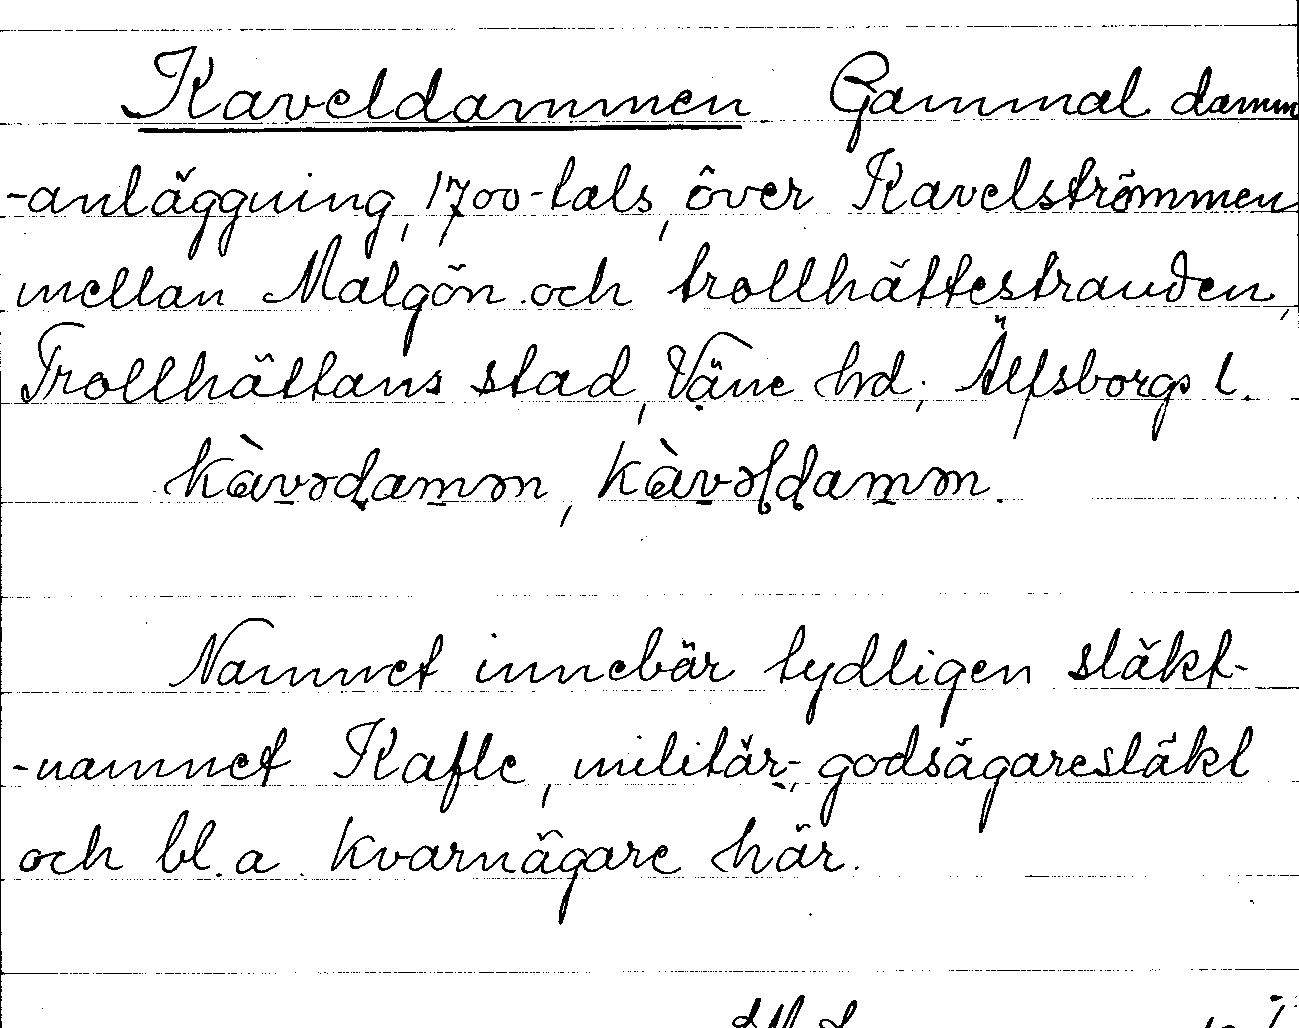 Kaveldammen Gammal damm
-anläggning, 1700-tals, över Kavelströmmen
mellan Malgön och trollhättestranden,
Trollhättans stad, Väne hd; Älfsborgs l.
kàvədamən, kàvəldamən.
Namnet innebär tydligen släkt-
-namnet Kafle, militär-, godsägaresläkt
och bl.a. kvarnägare här.